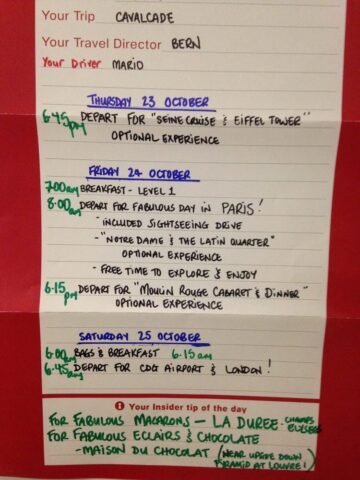 Your Trip CAVALCADE
Your Travel Director BERN
Your Driver MARIO
THURSDAY 23 OCTOBER
6.45pm DEPART FOR "SEINE CRUISE & EIFFEL TOWER"
OPTIONAL EXPERIENCE
FRIDAY 24 OCTOBER
7.00am BREAKFAST - LEVEL 1
8.00am DEPART FOR FABULOUS DAY IN PARIS!
- INCLUDED SIGHTSEEING DRIVE
- "NOTRE DAME & THE LATIN QUARTER"
OPTIONAL EXPERIENCE
- FREE TIME TO EXPLORE & ENJOY
6.15pm DEPART FOR "MOULIN ROUGE CABARET & DINNER"
OPTIONAL EXPERIENCE
SATURDAY 25 OCTOBER
6.00am BAGS & BREAKFAST 6.15am
6.45am DEPART FOR CDG AIRPORT & LONDON!
Your Insider tip of the day
FOR FABULOUS MACARONS - LA DUREE - CHAMPS ELYSEES
FOR FABULOUS ECLAIRS & CHOCOLATE
- MAISON DU CHOCOLAT (NEAR UPSIDE DOWN PYRAMID AT LOUVRE!)